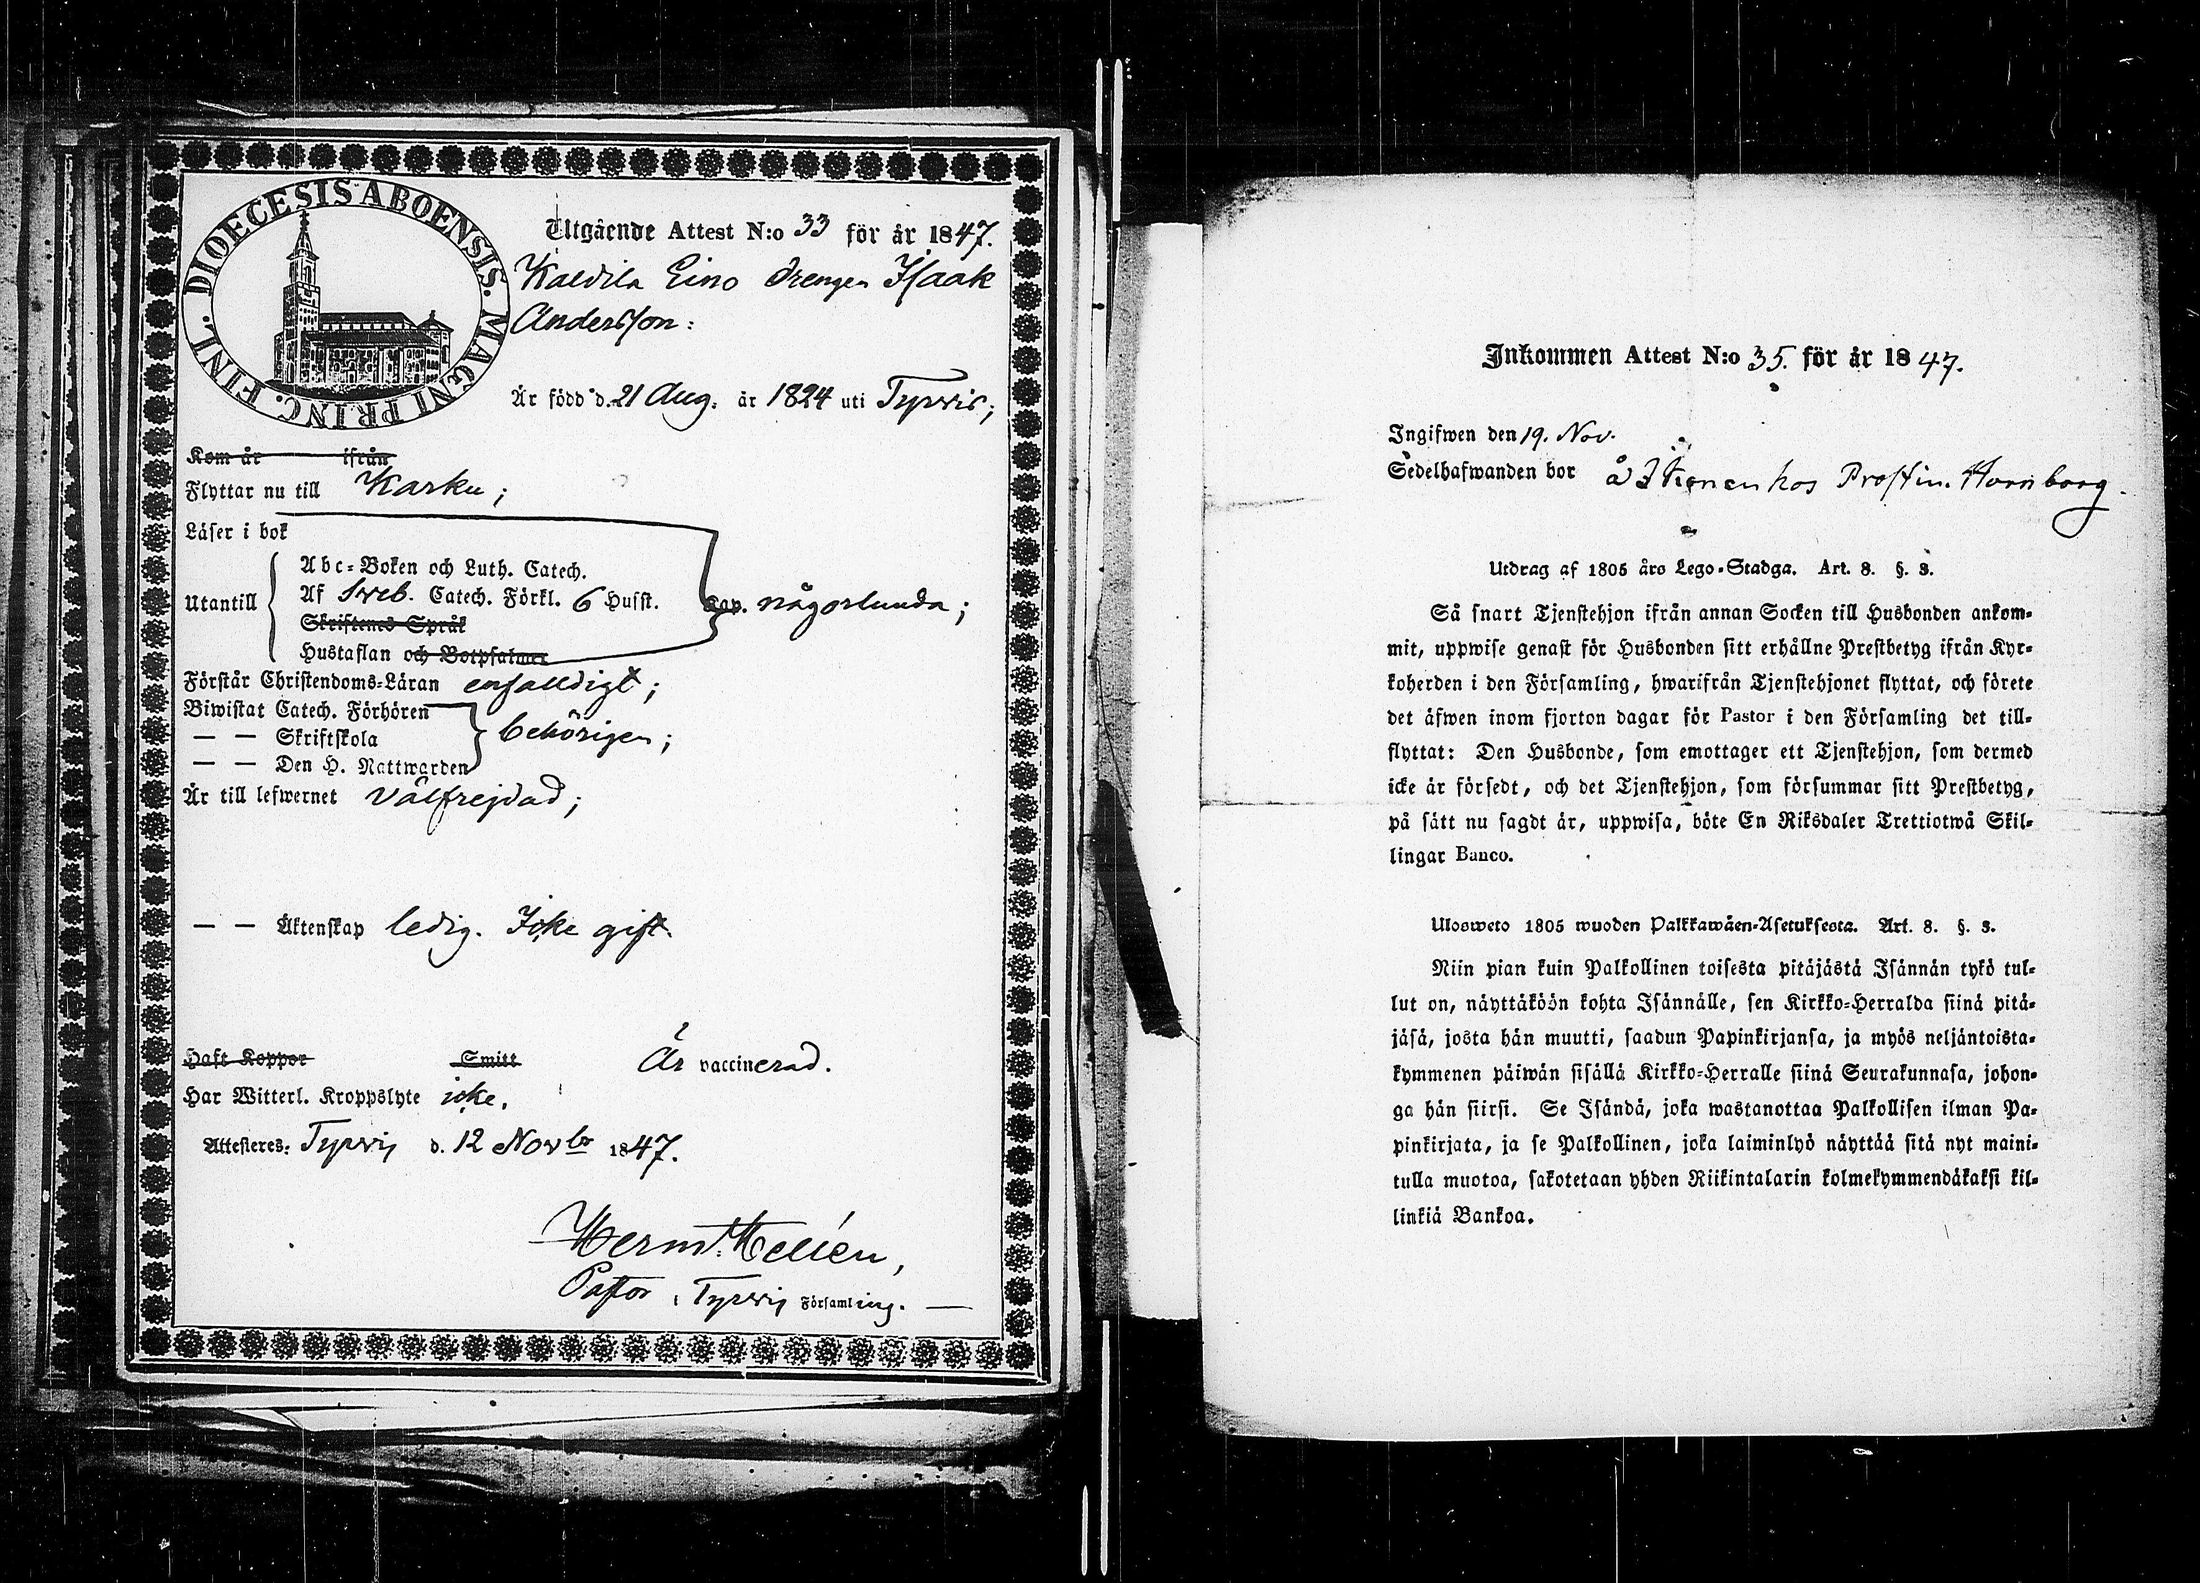 DIOECESIS ABOENSIS. MAGNI PRINC. FINL.
Utgående Attest N:o 33 för år 1847.
Kaldila Eino drengen Isaak
Andersson:
Är född d. 21 Aug. år 1824 uti Tyrvis;
Kom år ifrån
Flyttar nu till Karku;
Läser i bok
Utantill
Abc-Boken och Luth. Catech.
Af Sveb. Catech. Förkl. 6 Husst. Kap. någorlunda;
Skriftenes Språk
Hustaflan och Botpsalmer
Förstår Christendoms-Läran enfalldigt;
Biwistat Catech. Förhören
— — Skriftskola behörigen;
— — Den H. Nattwarden
Är till lefwernet välfrejdad;
— — Äktenskap ledig. Icke gift.
Haft Koppor Smitt Är vaccinerad.
Har Witterl. Kroppslyte icke.
Attesteres: Tyrvis d. 12 Novbr 1847.
Herm. Hellén,
Pastor i Tyrvis Församling. —
Inkommen Attest N:o 35. för år 1847.
Ingifwen den 19. Nov.
Sedelhafwanden bor å hos Prostin. Hornborg.
Utdrag af 1805 års Lego-Stadga. Art. 8. §. 3.
Så snart Tjenstehjon ifrån annan Socken till Husbonden ankom-
mit, uppwise genast för Husbonden sitt erhållne Prestbetyg ifrån Kyr-
koherden i den Församling, hwarifrån Tjenstehjonet flyttat, och förete
det äfwen inom fjorton dagar för Pastor i den Församling det till-
flyttat: Den Husbonde, som emottager ett Tjenstehjon, som dermed
icke är försedt, och det Tjenstehjon, som försummar sitt Prestbetyg,
på sätt nu sagdt är, uppwisa, böte En Riksdaler Trettiotwå Skil-
lingar Banco.
Ulosweto 1805 wuoden Palkkawäen-Asetuksesta. Art. 8. §. 3.
Niin pian kuin Palkollinen toisesta pitäjästä Isännän tykö tul-
lut on, näyttäköön kohta Isännälle, sen Kirkko-Herralda siinä pitä-
jäsä, josta hän muutti, saadun Papinkirjansa, ja myös neljäntoista-
kymmenen päiwän sisällä Kirkko-Herralle siinä Seurakunnasa, johon-
ga hän siirsi. Se Isändä, joka wastanottaa Palkollisen ilman Pa-
pinkirjata, ja se Palkollinen, joka laiminlyö näyttää sitä nyt maini-
tulla muotoa, sakotetaan yhden Riikintalarin kolmekymmendäkaksi kil-
linkiä Bankoa.